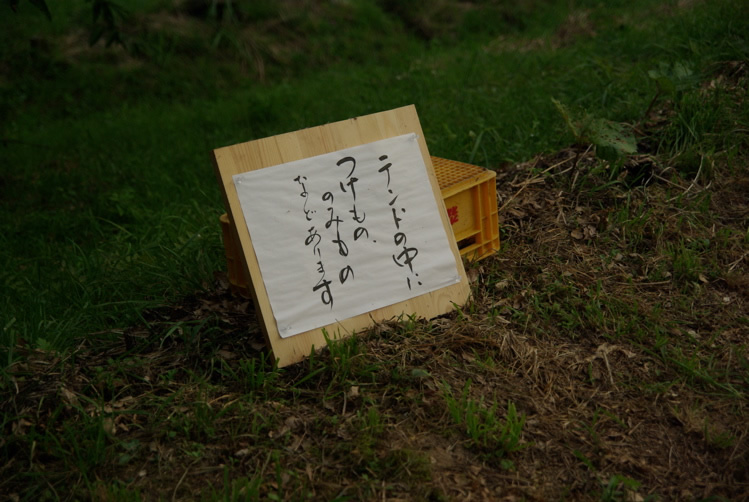 テントの中に
つけもの、
のみもの
などあります